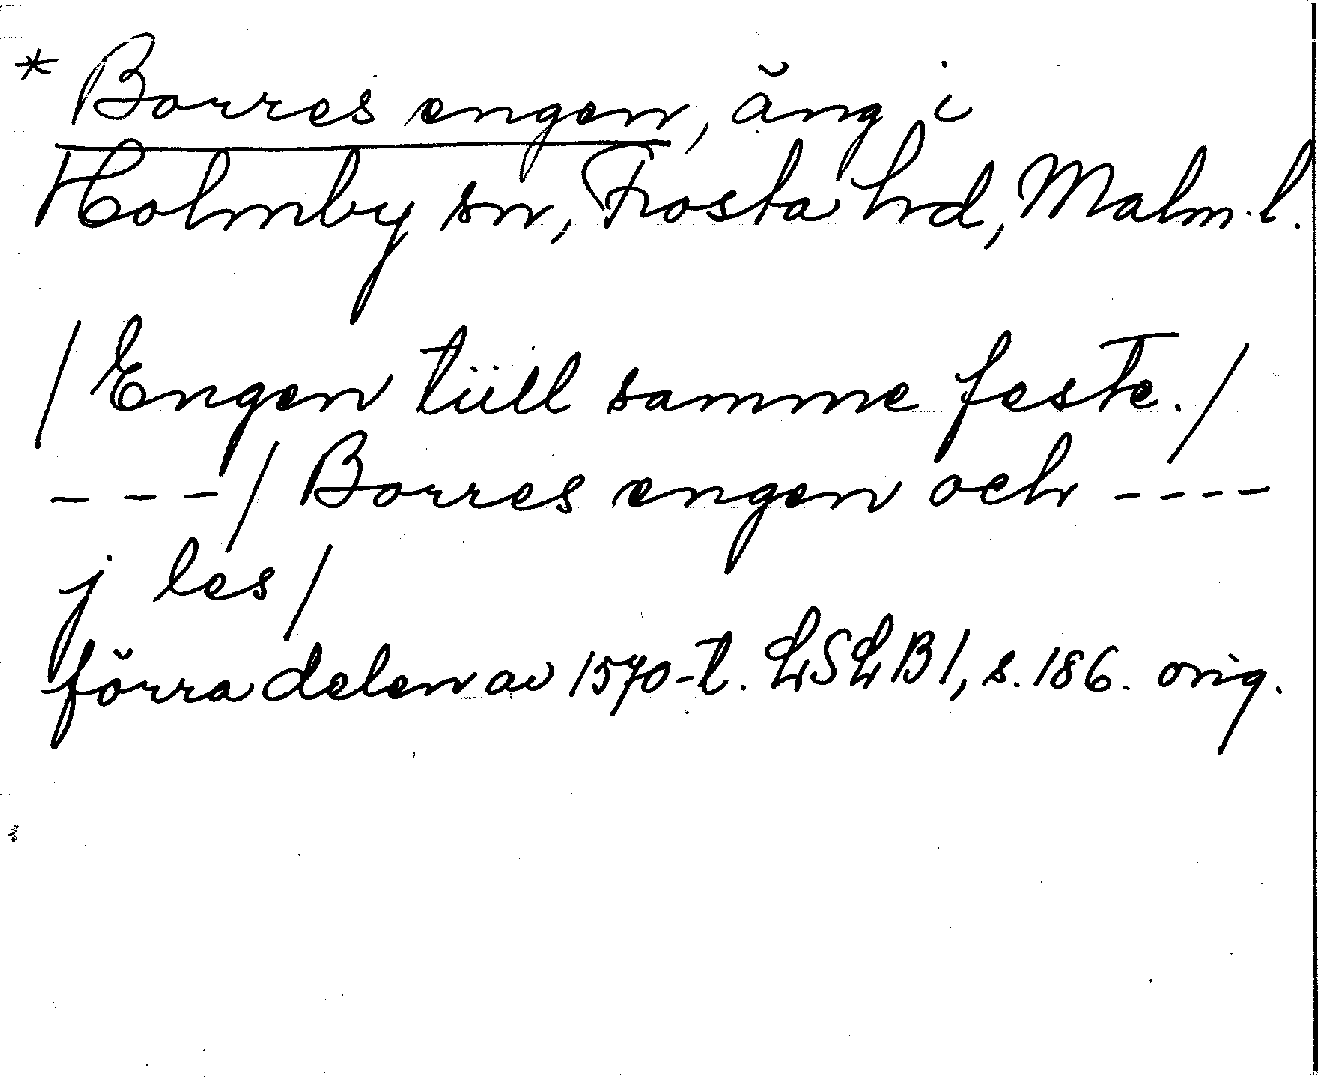 * Borres engen, äng i
Holmby sn, Frosta hd, Malm. l.
/ Engen tüll samme feste. /
- - - / Borres engen och - - - -
j les /
förra delen av 1570-t. LSLB 1, s. 186. orig.